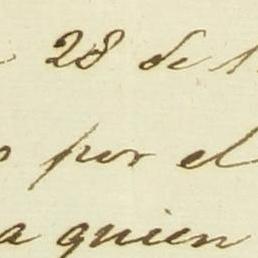 28 de
por el
a quien